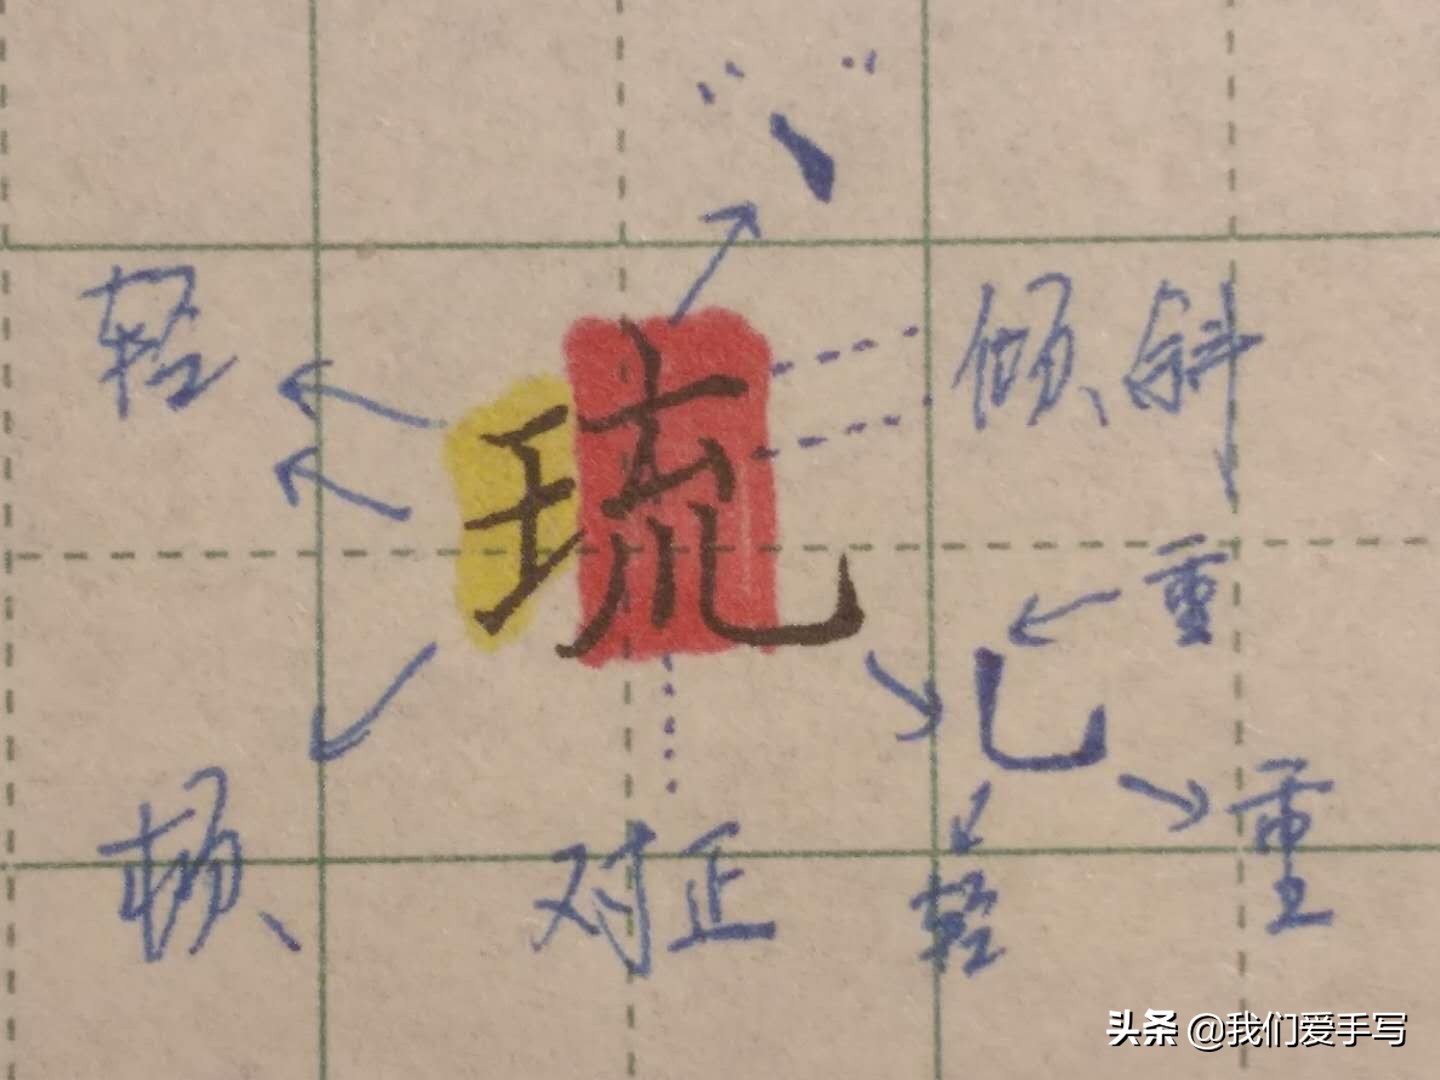 轻
倾斜
琉
重
重
顿
对正
轻
头条 @我们爱手写